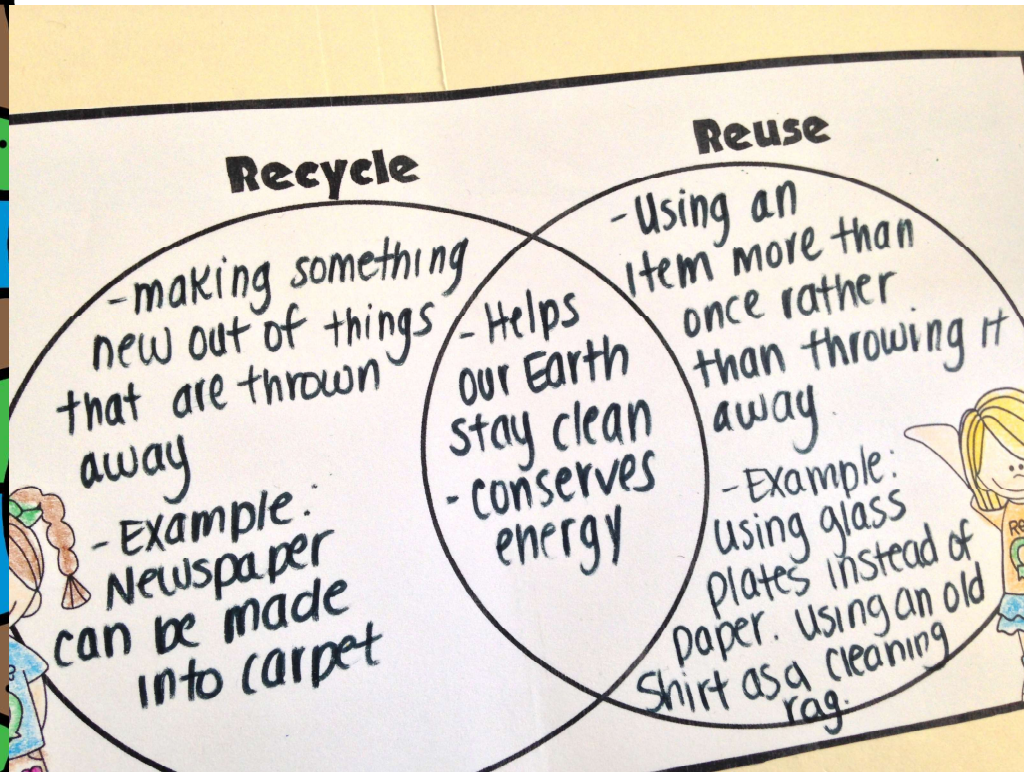 Recycle
-making something
new out of things
that are thrown
away
-Example:
Newspaper
can be made
into carpet
-Helps
our Earth
stay clean
-conserves
energy
Reuse
-Using an
item more than
once rather
than throwing it
away.
-Example:
using glass
plates instead of
paper. Using an old
shirt as a cleaning
rag.